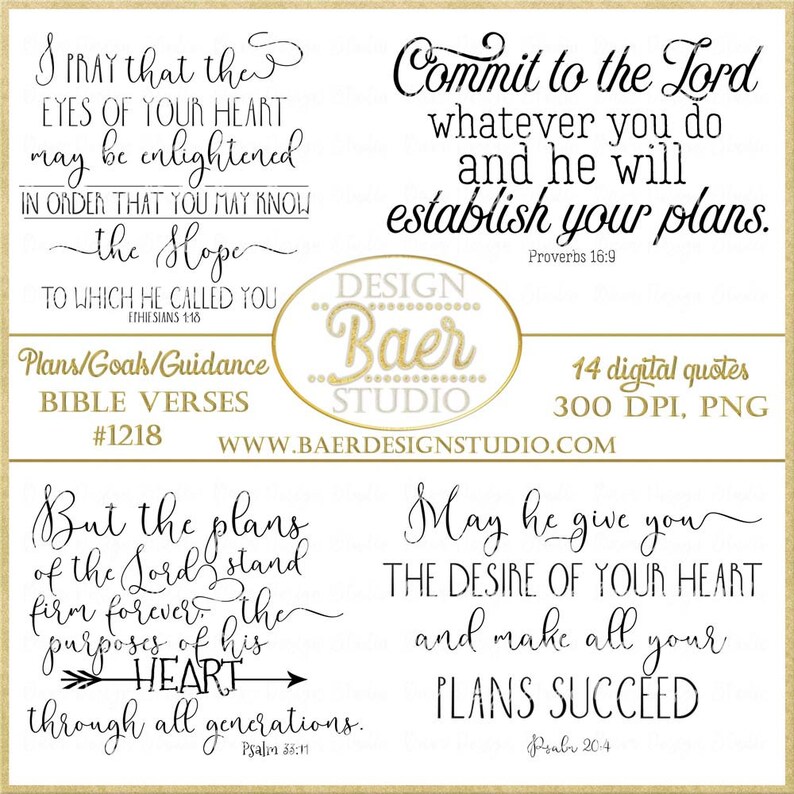 I PRAY that the
EYES OF YOUR HEART
may be enlightened
IN ORDER THAT YOU MAY KNOW
the Hope
TO WHICH HE CALLED YOU
EPHIESIANS 1:18
Commit to the Lord
whatever you do
and he will
establish your plans.
Proverbs 16:9
Plans/Goals/Guidance
BIBLE VERSES
#1218
DESIGN
Baer
STUDIO
14 digital quotes
300 DPI, PNG
WWW.BAERDESIGNSTUDIO.COM
But the plans
of the Lord stand
firm forever, the
purposes of his
HEART
through all generations.
Psalm 33:11
May he give you
THE DESIRE OF YOUR HEART
and make all your
PLANS SUCCEED
Psalm 20:4